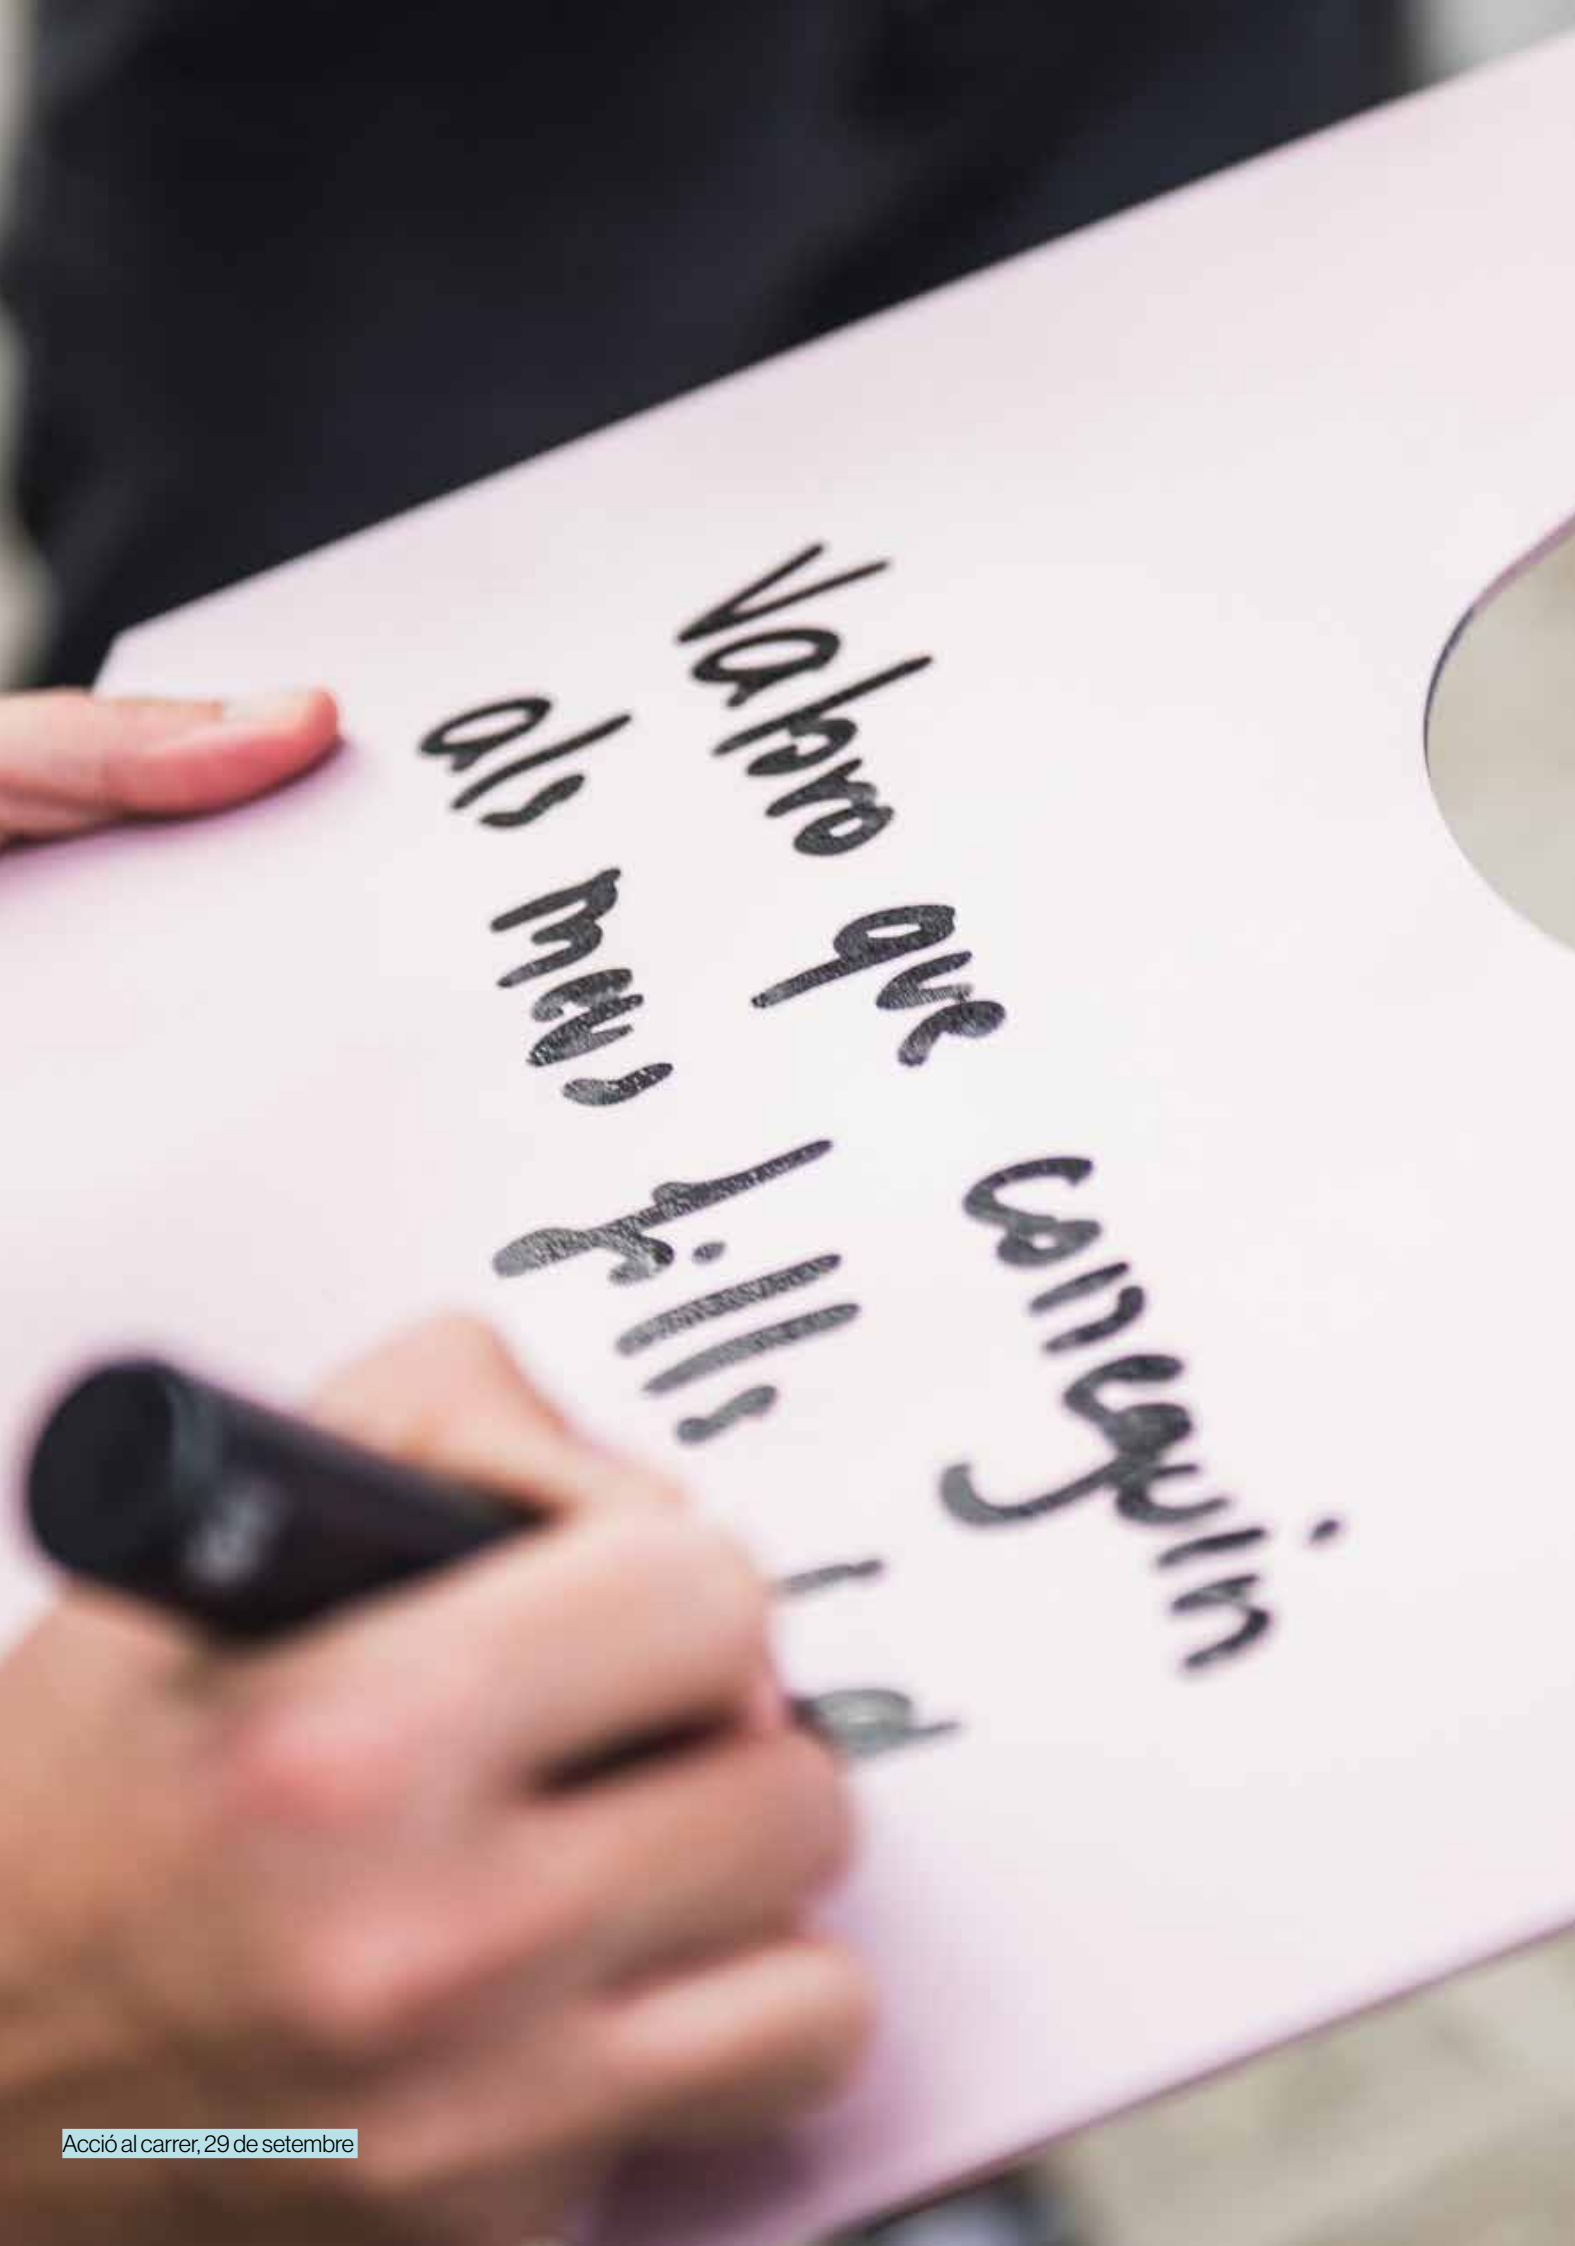 Valoro que coneguin
als meus fills
Acció al carrer, 29 de setembre